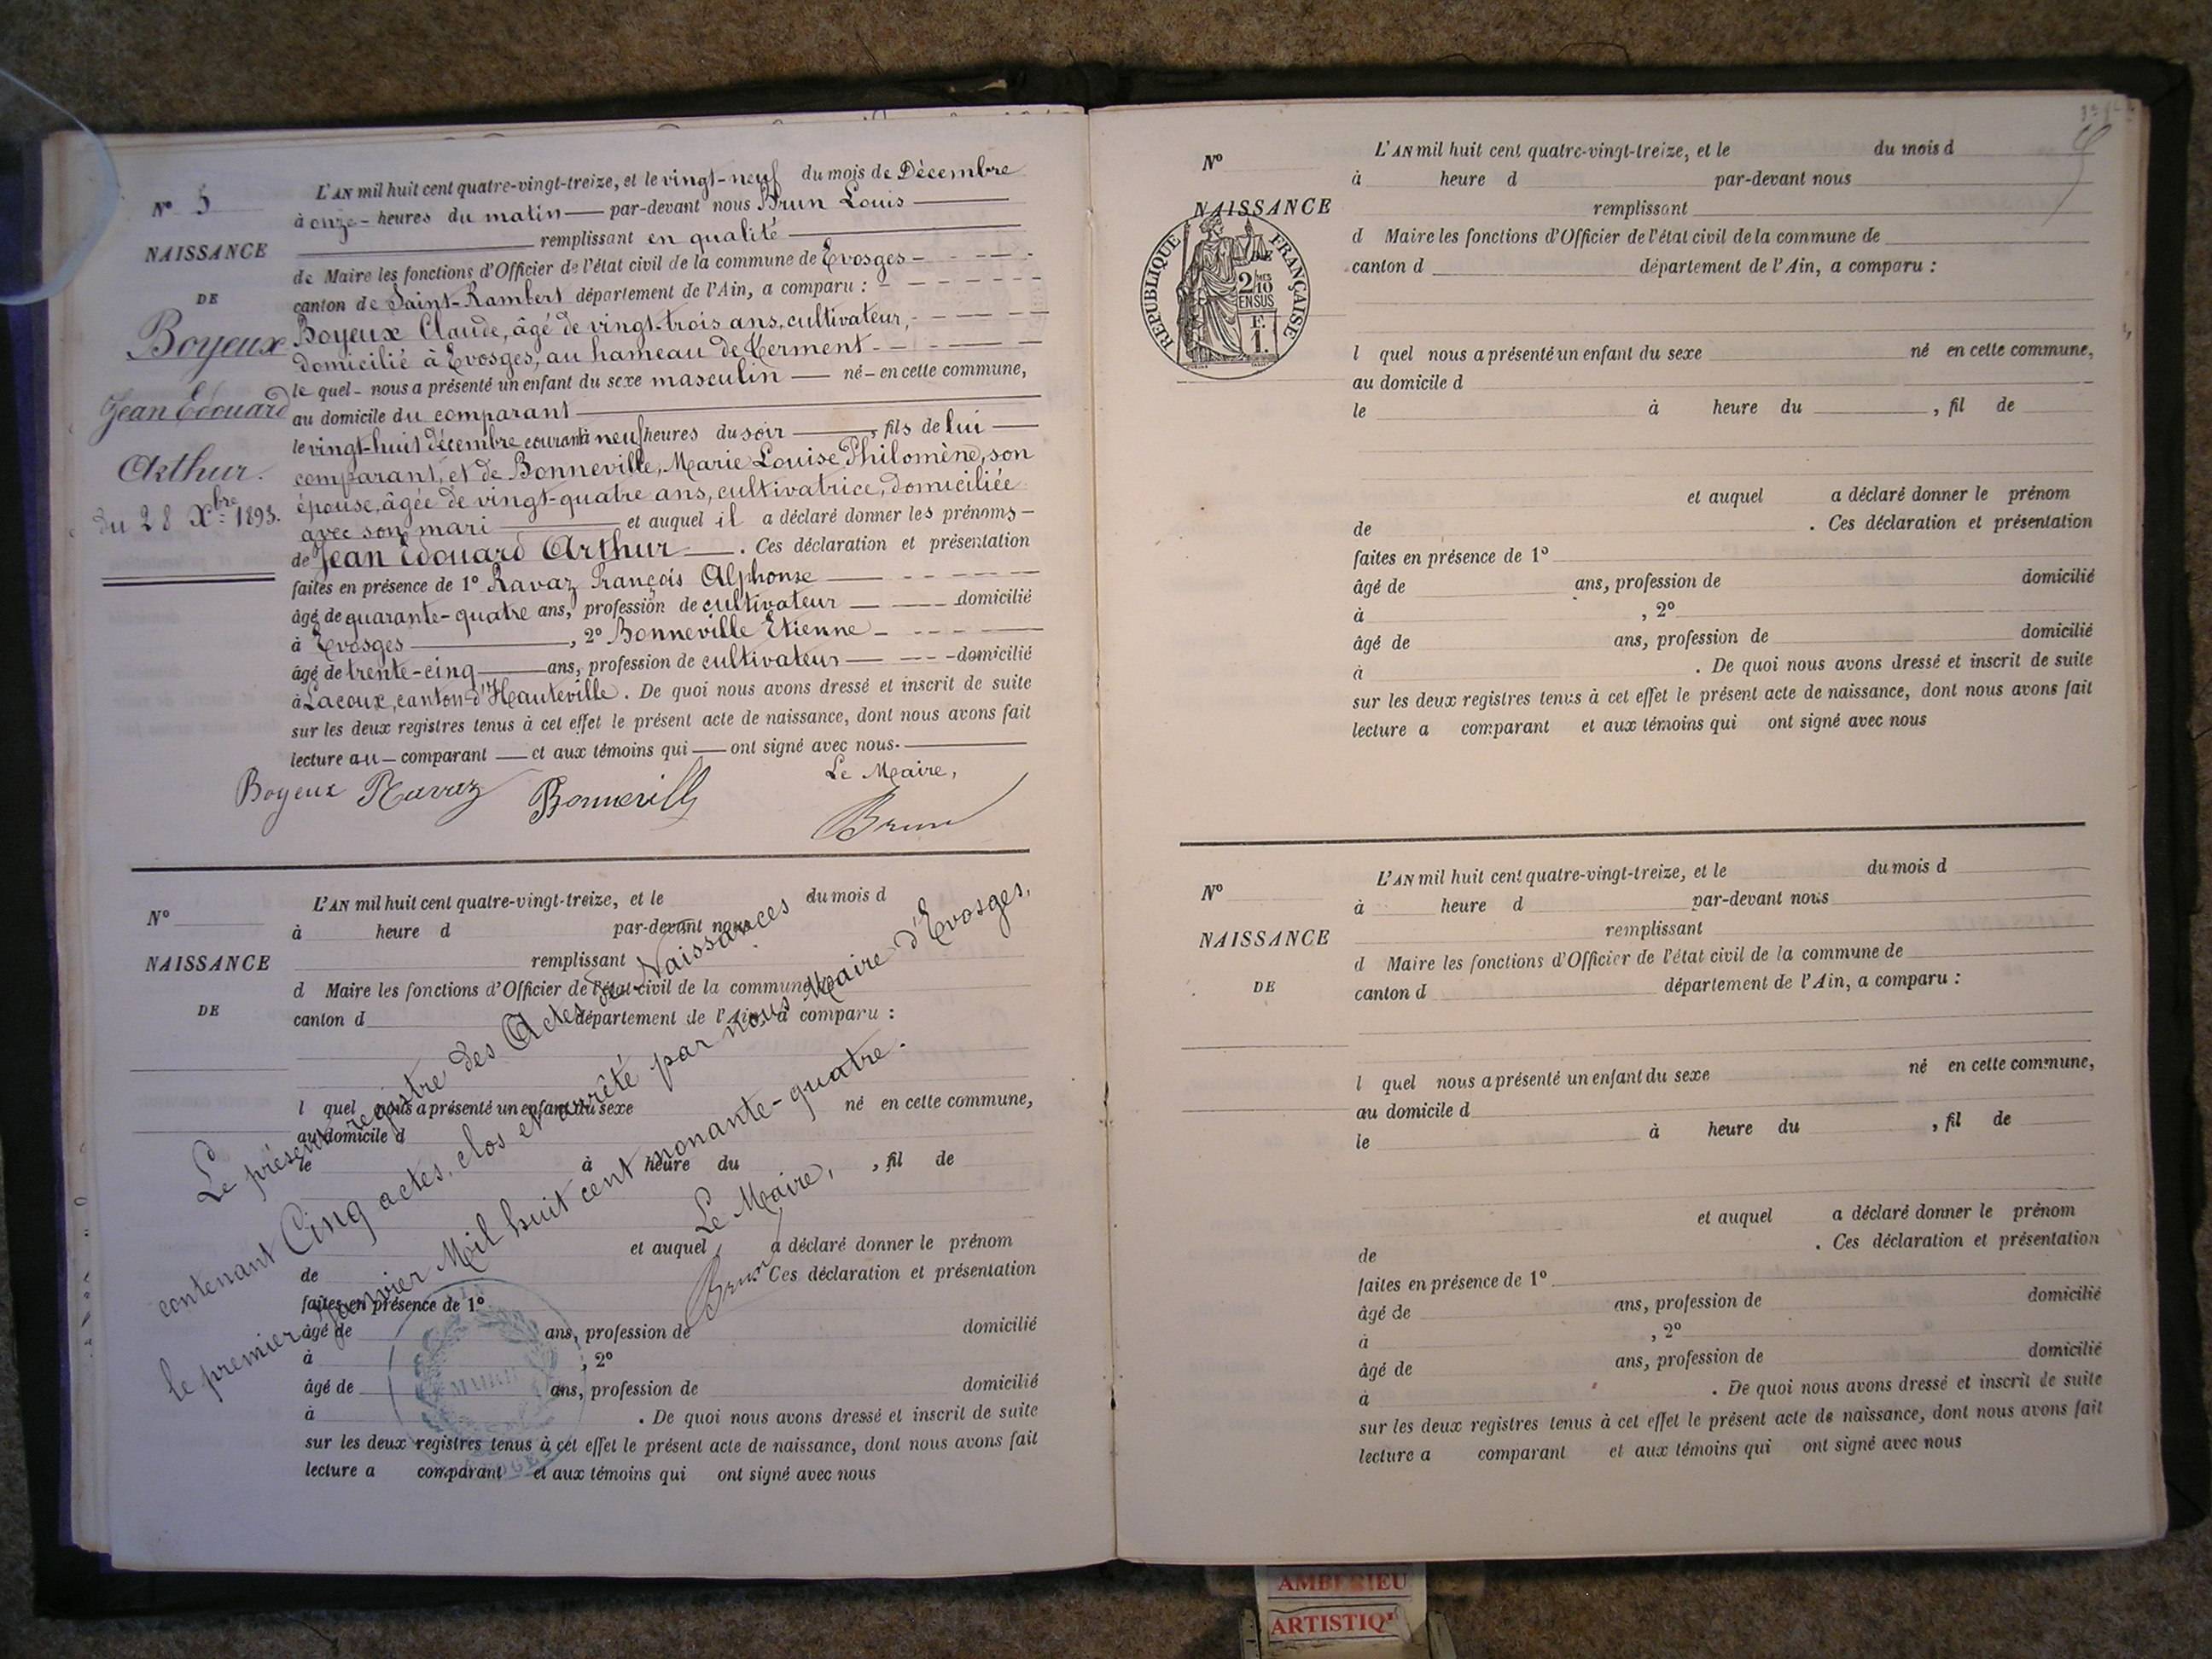 N° 5
NAISSANCE
DE
Boyeux
Jean Edouard
Arthur.
du 28 Xbre 1893.
L'AN mil huit cent quatre-vingt-treize, et le vingt-neuf du mois de Décembre
à onze - heures du matin — par-devant nous Brun Louis —
remplissant en qualité —
de Maire les fonctions d'Officier de l'état civil de la commune de Evosges -
canton de Saint-Rambert département de l'Ain, a comparu :
Boyeux Claude, âgé de vingt-trois ans, cultivateur,
domicilié à Evosges, au hameau de
le quel - nous a présenté un enfant du sexe masculin — né - en cette commune,
au domicile du comparant —
le vingt-huit décembre courant à neuf heures du soir —, fils de lui —
comparant, et de Bonneville, Marie Louise Philomène, son
épouse, âgée de vingt-quatre ans, cultivatrice, domiciliée
avec son mari — et auquel il a déclaré donner les prénoms —
de Jean Edouard Arthur —. Ces déclaration et présentation
faites en présence de 1° Ravaz François Alphonse —
âgé de quarante-quatre ans, profession de cultivateur — domicilié
à Evosges —, 2° Bonneville Etienne -
âgé de trente-cinq — ans, profession de cultivateur — domicilié
à Lacoux, canton d'Hauteville. De quoi nous avons dressé et inscrit de suite
sur les deux registres tenus à cet effet le présent acte de naissance, dont nous avons fait
lecture au — comparant — et aux témoins qui — ont signé avec nous. —
Le Maire,
Boyeux Ravaz Bonneville
Brun
N°
NAISSANCE
DE
L'AN mil huit cent quatre-vingt-treize, et le du mois d
à heure d par-devant nous
remplissant
d Maire les fonctions d'Officier de l'état civil de la commune de
canton d département de l'Ain, a comparu :
l quel nous a présenté un enfant du sexe né en cette commune,
au domicile d
le à heure du , fil de
et auquel a déclaré donner le prénom
de . Ces déclaration et présentation
faites en présence de 1°
âgé de ans, profession de domicilié
à , 2°
âgé de ans, profession de domicilié
à . De quoi nous avons dressé et inscrit de suite
sur les deux registres tenus à cet effet le présent acte de naissance, dont nous avons fait
lecture a comparant et aux témoins qui ont signé avec nous
Le présent registre des Actes de Naissances
contenant Cinq actes, clos et arrêté par nous Maire d'Evosges,
le premier Janvier Mil huit cent nonante-quatre.
Le Maire,
Brun
MAIRIE
N°
NAISSANCE
DE
RÉPUBLIQUE FRANÇAISE
2/10
EN SUS
F.
1.
L'AN mil huit cent quatre-vingt-treize, et le du mois d
à heure d par-devant nous
remplissant
d Maire les fonctions d'Officier de l'état civil de la commune de
canton d département de l'Ain, a comparu :
l quel nous a présenté un enfant du sexe né en cette commune,
au domicile d
le à heure du , fil de
et auquel a déclaré donner le prénom
de . Ces déclaration et présentation
faites en présence de 1°
âgé de ans, profession de domicilié
à , 2°
âgé de ans, profession de domicilié
à . De quoi nous avons dressé et inscrit de suite
sur les deux registres tenus à cet effet le présent acte de naissance, dont nous avons fait
lecture a comparant et aux témoins qui ont signé avec nous
N°
NAISSANCE
DE
L'AN mil huit cent quatre-vingt-treize, et le du mois d
à heure d par-devant nous
remplissant
d Maire les fonctions d'Officier de l'état civil de la commune de
canton d département de l'Ain, a comparu :
l quel nous a présenté un enfant du sexe né en cette commune,
au domicile d
le à heure du , fil de
et auquel a déclaré donner le prénom
de . Ces déclaration et présentation
faites en présence de 1°
âgé de ans, profession de domicilié
à , 2°
âgé de ans, profession de domicilié
à . De quoi nous avons dressé et inscrit de suite
sur les deux registres tenus à cet effet le présent acte de naissance, dont nous avons fait
lecture a comparant et aux témoins qui ont signé avec nous
AMBERIEU
ARTISTIQ